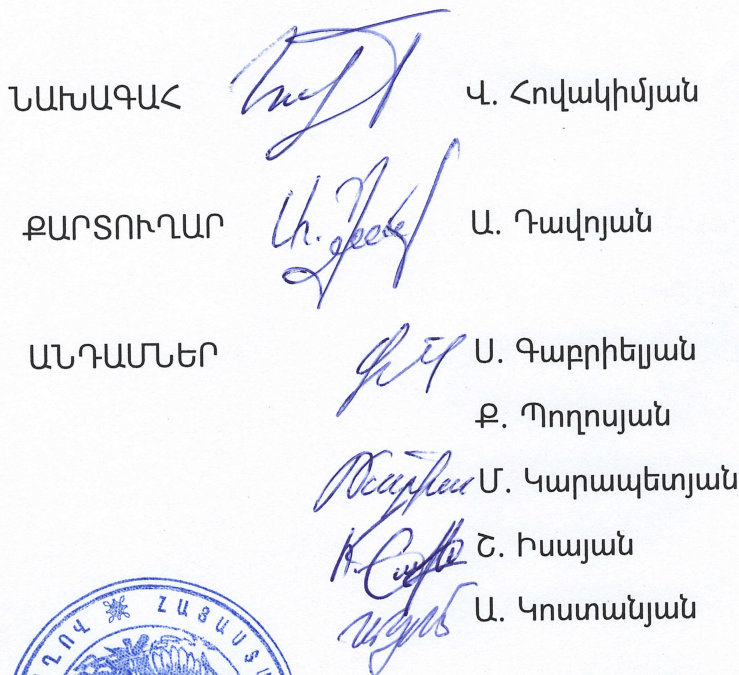 ՆԱԽԱԳԱՀ Վ. Հովակիմյան
ՔԱՐՏՈՒՂԱՐ Ա. Դավոյան
ԱՆԴԱՄՆԵՐ Ս. Գաբրիելյան
Ք. Պողոսյան
Մ. Կարապետյան
Շ. Իսայան
Ա. Կոստանյան